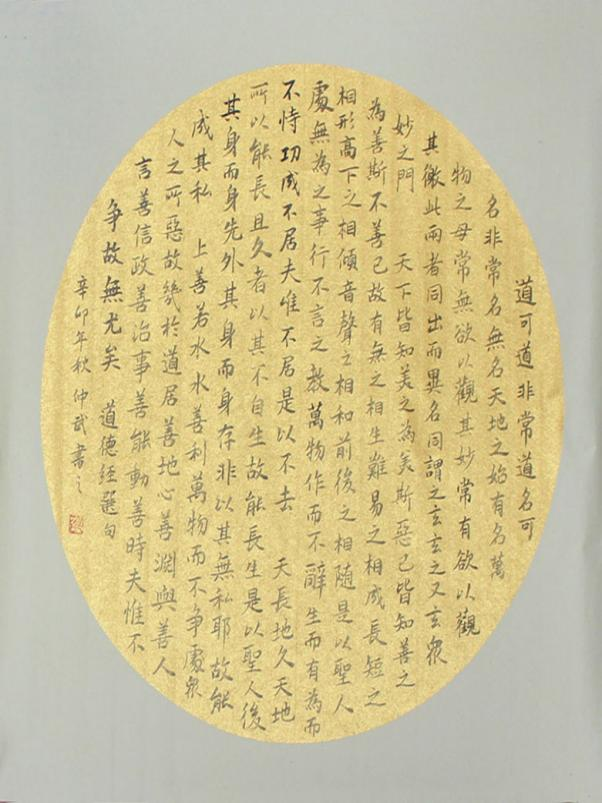 道可道非常道名可
名非常名無名天地之始有名萬
物之母常無欲以觀其妙常有欲以觀
其徼此兩者同出而異名同謂之玄玄之又玄衆
妙之門 天下皆知美之為美斯惡已皆知善之
為善斯不善已故有無之相生難易之相成長短之
相形高下之相傾音聲之相和前後之相隨是以聖人
處無為之事行不言之教萬物作而不辭生而有為而
不恃功成不居夫惟不居是以不去 天長地久天地
所以能長且久者以其不自生故能長生是以聖人後
其身而身先外其身而身存非以其無私耶故能
成其私 上善若水水善利萬物而不争處衆
人之所惡故幾於道居善地心善淵與善人
言善信政善治事善能動善時夫惟不
争故無尤矣 道德經選句
辛卯年秋仲武書之